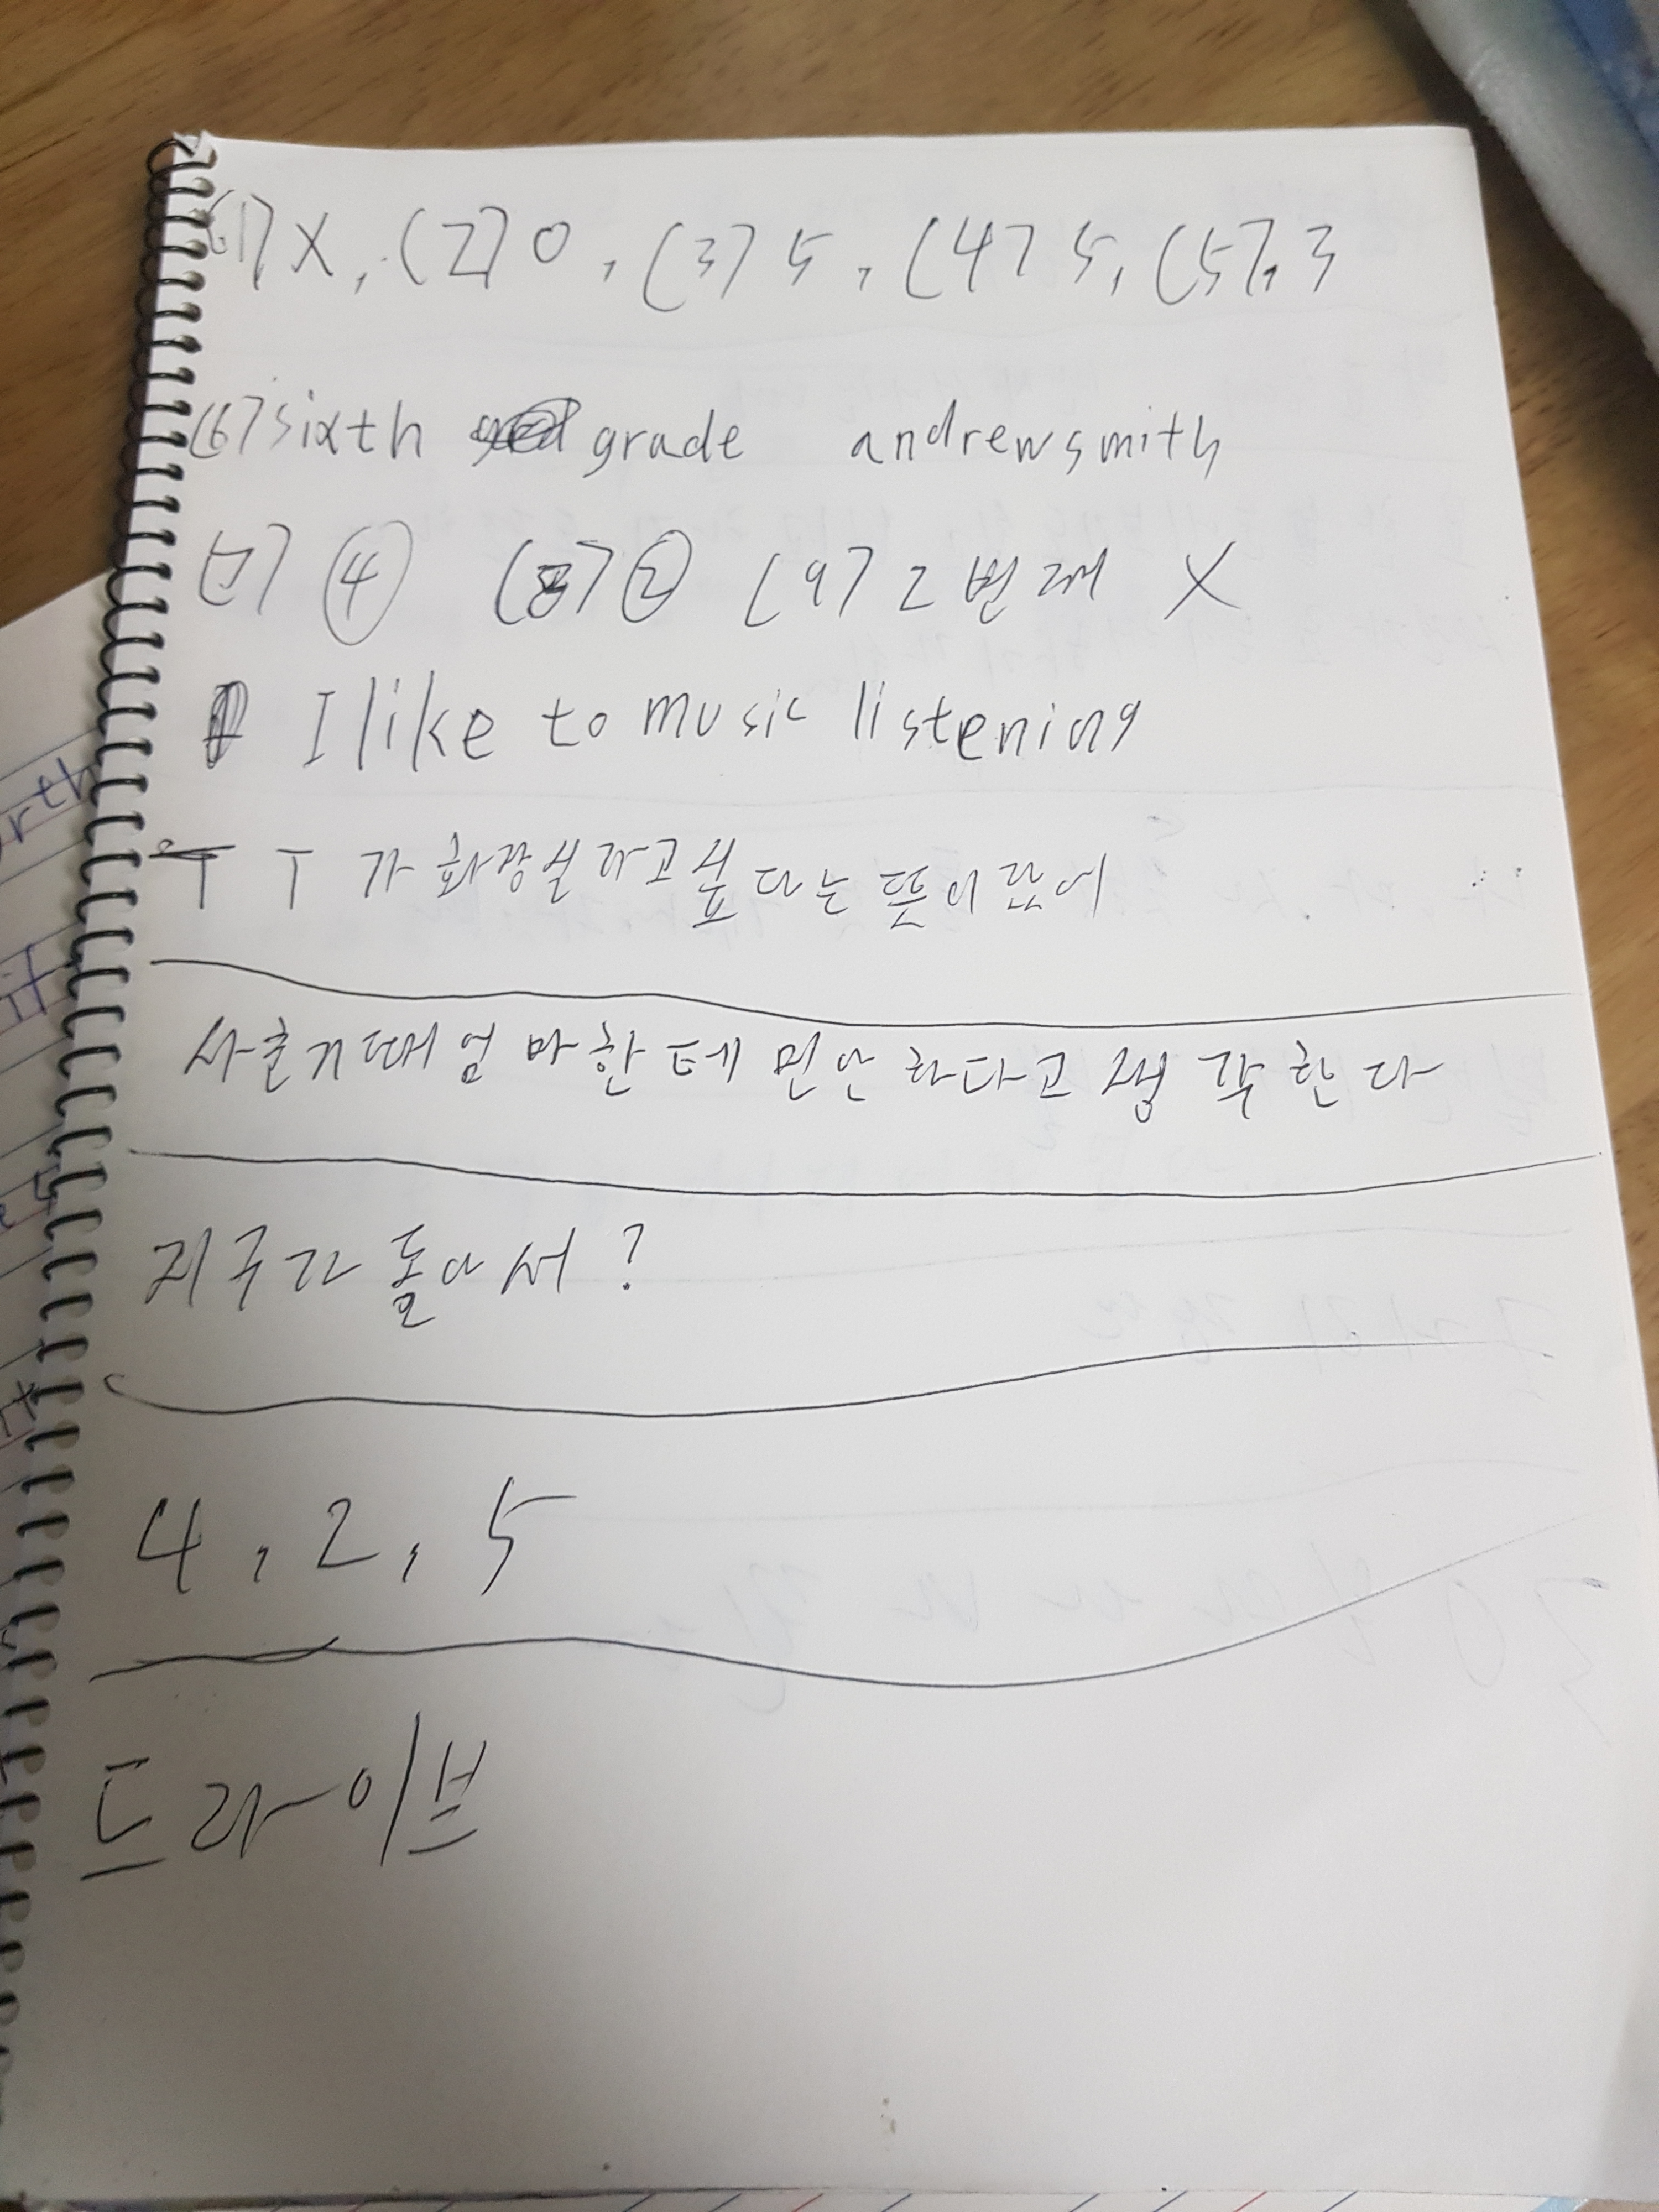 (1) X, (2) O, (3) 5, (4) 5, (5), 3
(6) sixth grade andrewsmith
(7) ④ (8) ② (9) 2번째 X
I like to music listening
T T가 화장실라고싶다는 뜻이랐어
사춘기때 엄마한테 민안하다고 생각한다
지구가 돌아서?
4, 2, 5
드라이브